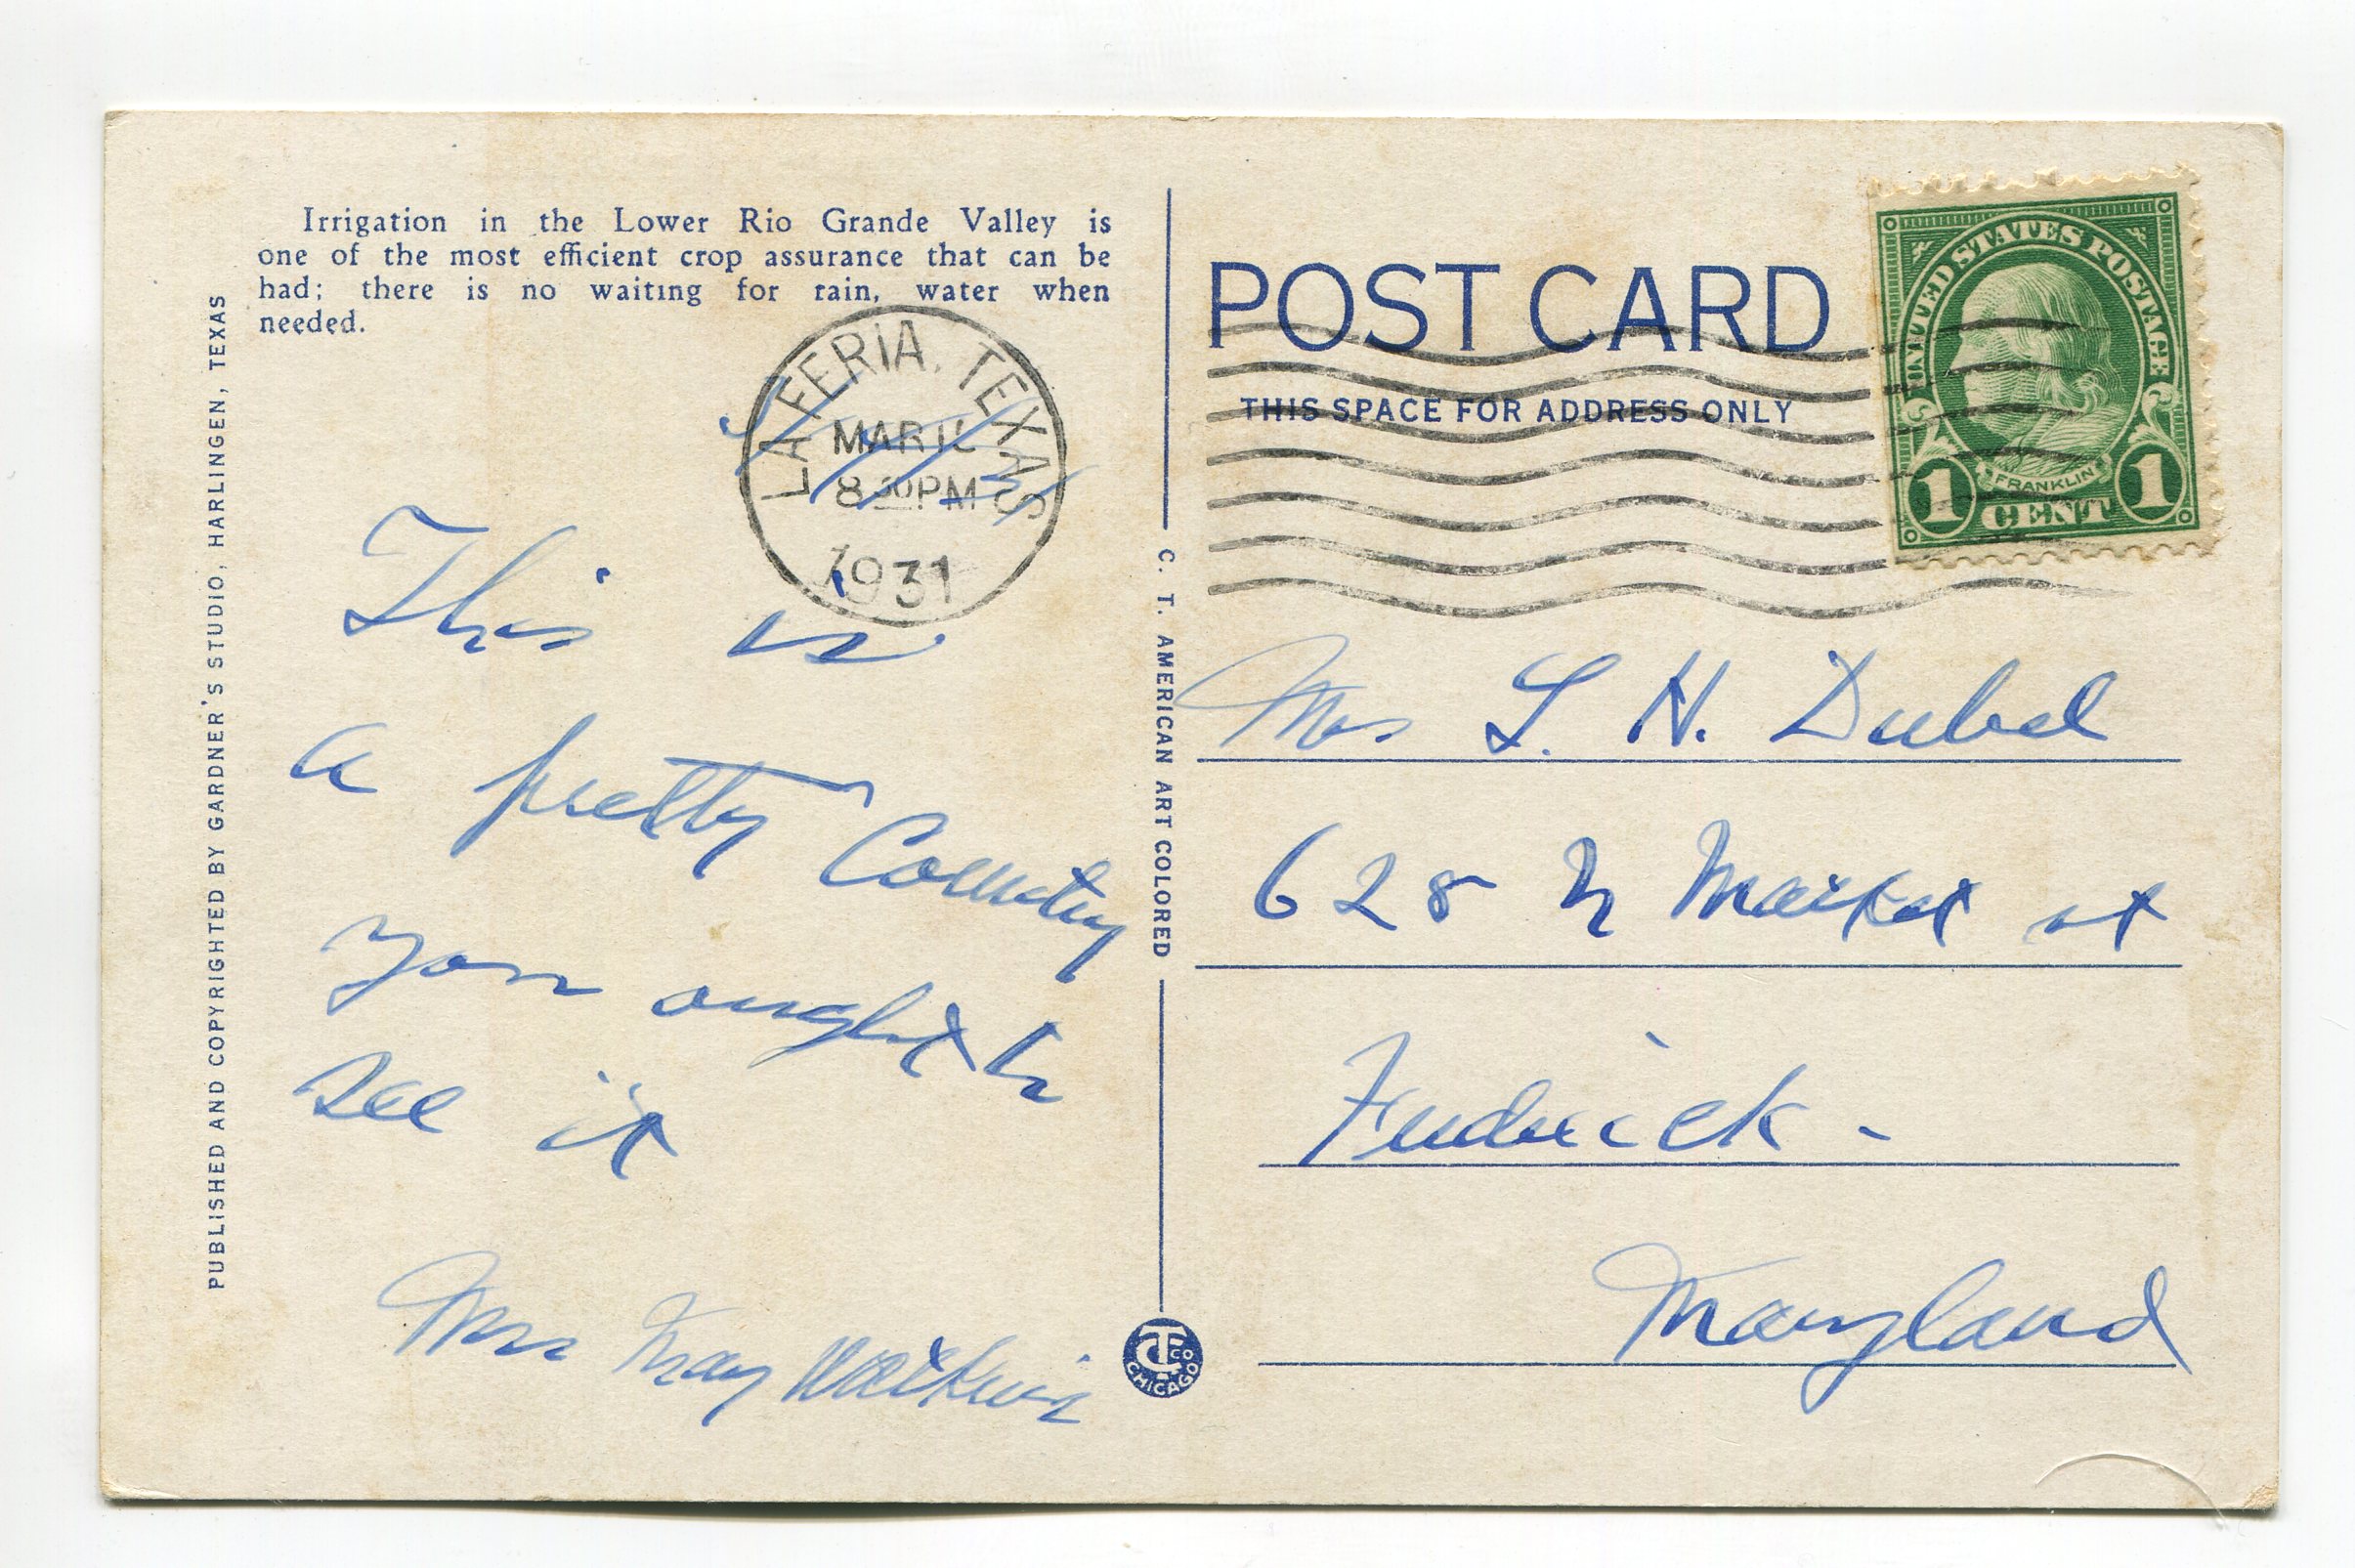 Irrigation in the Lower Rio Grande Valley is
one of the most efficient crop assurance that can be
had; there is no waiting for rain, water when
needed.
PUBLISHED AND COPYRIGHTED BY GARDNER'S STUDIO, HARLINGEN, TEXAS
LA FERIA, TEXAS
MAR
8 30 PM
1931
This is
a pretty Country
you ought to
see it
Mrs May Watkins
C. T. AMERICAN ART COLORED
CT CO
CHICAGO
POST CARD
THIS SPACE FOR ADDRESS ONLY
UNITED STATES POSTAGE
FRANKLIN
1 CENT 1
Mrs L. H. Dubel
628 N Market st
Frederick -
Maryland